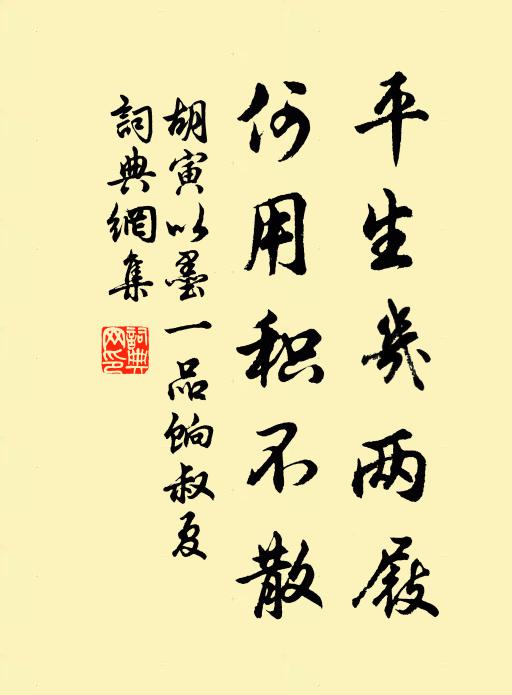 平生几两屐
何用积不散
胡寅以墨一品餉叔夏
詞典網集
詞典網印